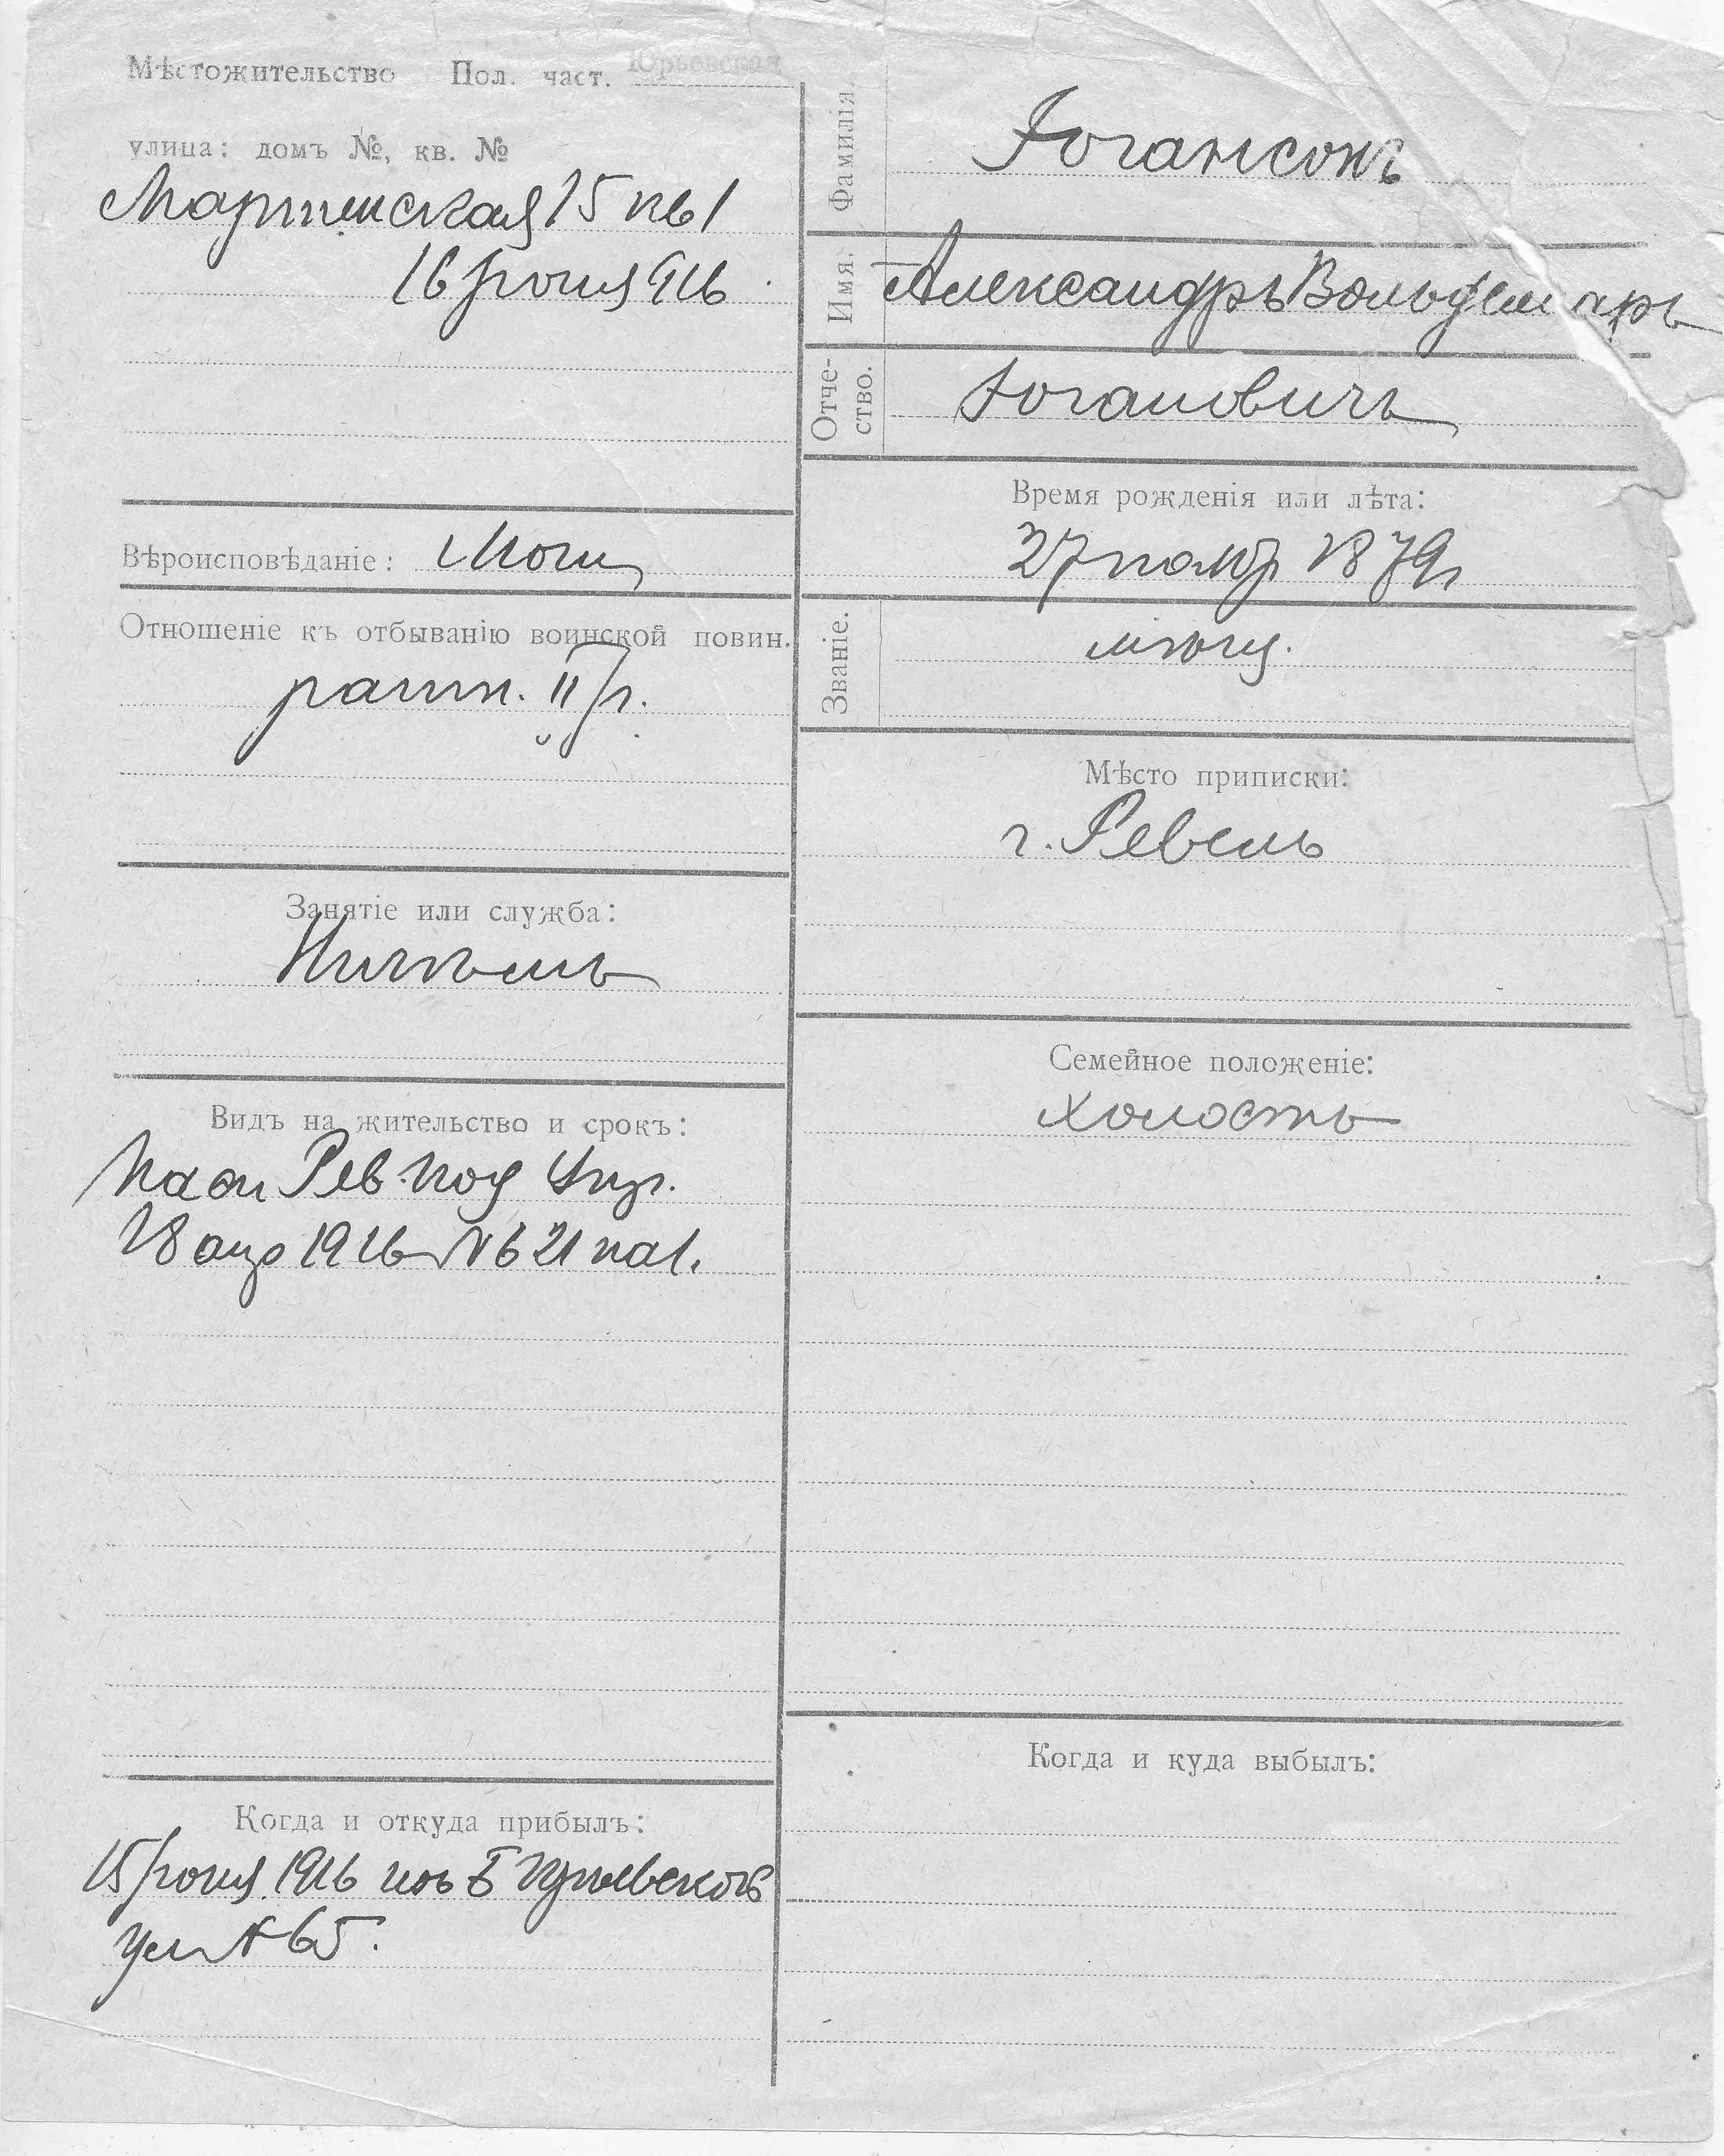 Мѣстожительство Пол. част. Юрьевская
улица: домъ №, кв. №
Мартенская 15 кв 1
16 Іюня 916
Вѣроисповѣданіе: Лют
Отношеніе къ отбыванію воинской повин.
ратн. II р.
Занятіе или служба:
Учитель
Видъ на жительство и срокъ:
Рев. под Упр.
18 1916 № 621 на 1.
Когда и откуда прибылъ:
15 Іюня 1916 по Б Юрьевской
ул № 65.
Фамилія
Іогансонъ
Имя.
Александръ Вольдемаръ
Отче-
ство.
Іогановичъ
Время рожденія или лѣта:
27 нояб 1879 г
Званіе.
мѣщ.
Мѣсто приписки:
г. Ревель
Семейное положеніе:
холостъ
Когда и куда выбылъ: